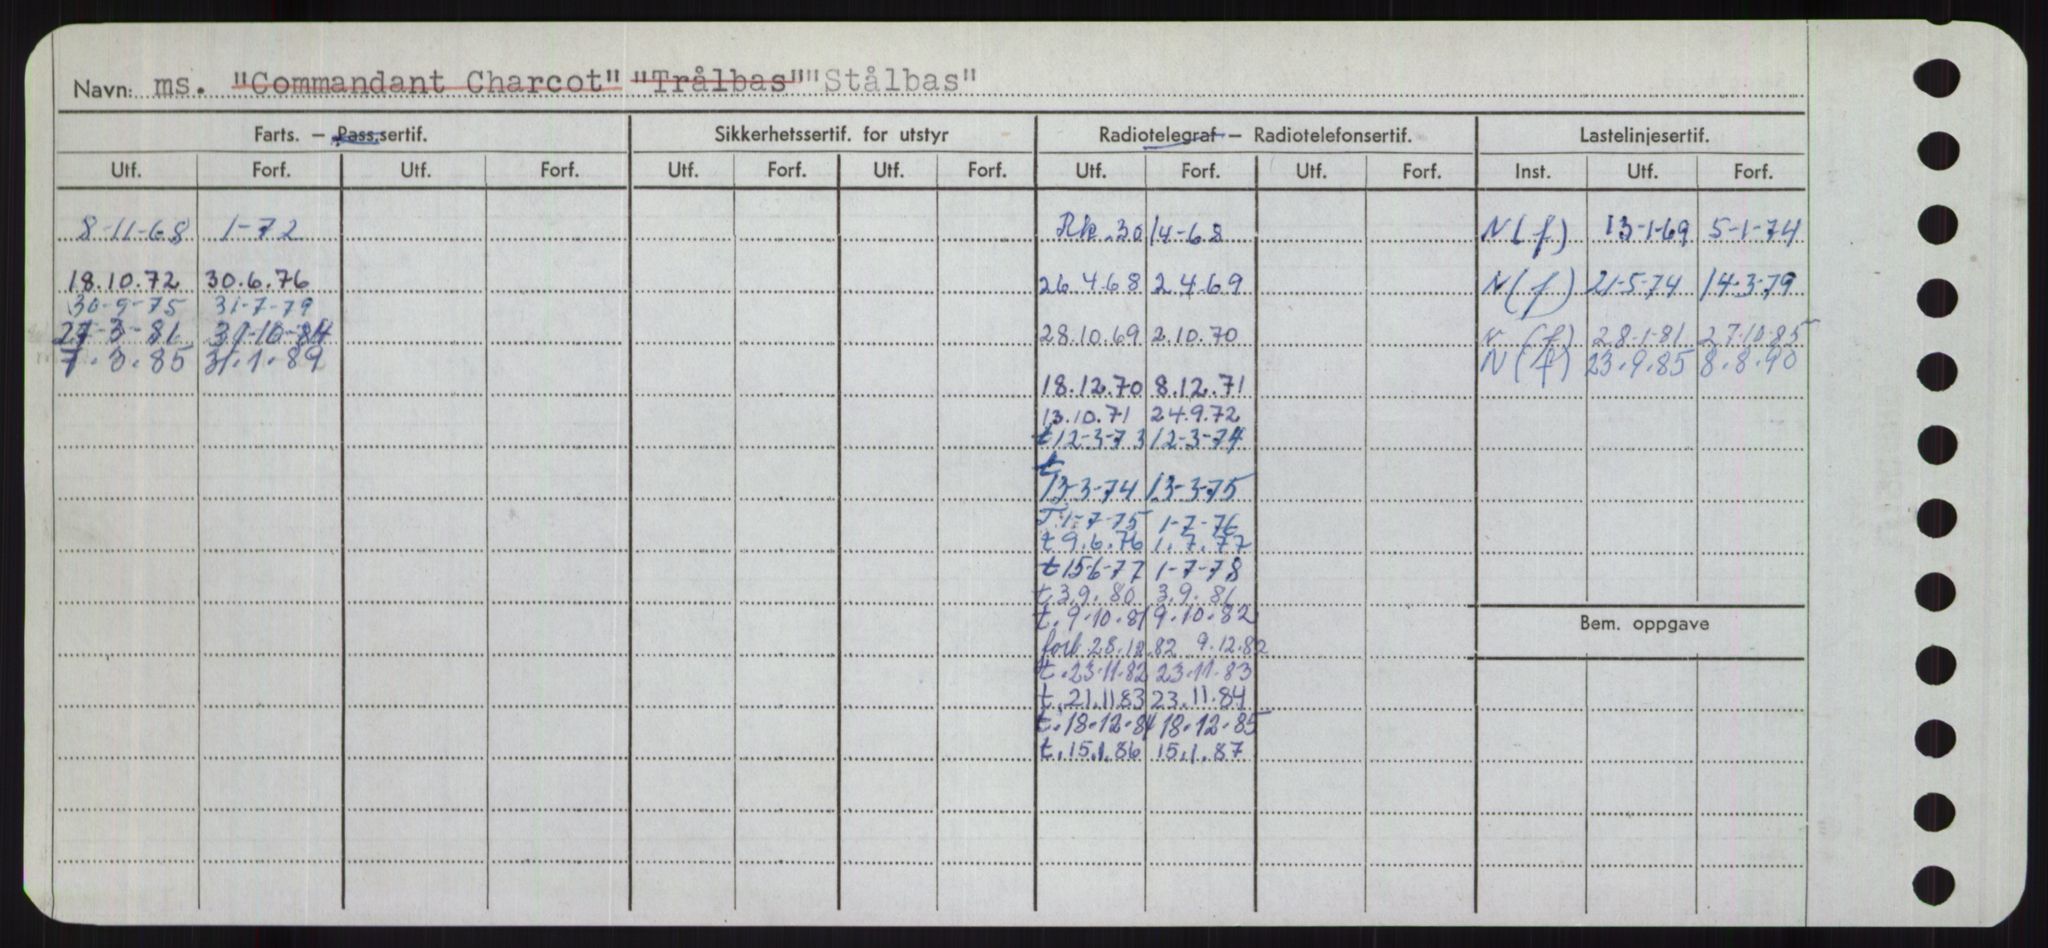 Navn: ms. "Commandant Charcot" "Trålbas" "Stålbas"
Farts. – Pass.sertif. Sikkerhetssertif. for utstyr Radiotelegraf – Radiotelefonsertif. Lastelinjesertif.
Utf. Forf. Utf. Forf. Utf. Forf. Utf. Forf. Utf. Forf. Utf. Forf. Inst. Utf. Forf.
8-11-68 1-72 Rk. 30/4-68 N(f) 13-1-69 5-1-74
18.10.72 30.6.76 26.4.68 2.4.69 N(f) 21-5-74 14-3-79
30-9-75 31-7-79
27-3-81 31-10-84 28.10.69 2.10.70 N(f) 28.1.81 27.10.85
7.3.85 31.1.89 N(f) 23.9.85 8.8.90
18.12.70 8.12.71
13.10.71 24.9.72
t 12-3-73 12-3-74
t
13-3-74 13-3-75
T. 1-7-75 1-7-76
t 9.6.76 1.7.77
t 15-6-77 1-7-78
t. 3.9.80 3.9.81
t. 9.10.81 9.10.82
Bem. oppgave
forl. 28.10.82 9.12.82
t. 23.11.82 23.11.83
t. 21.11.83 23.11.84
t. 18.12.84 18.12.85
t. 15.1.86 15.1.87